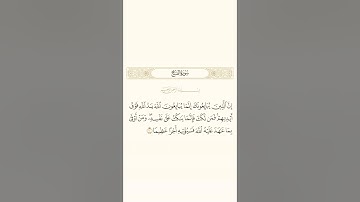 سورة الفتح
إِنَّ ٱلَّذِينَ يُبَايِعُونَكَ إِنَّمَا يُبَايِعُونَ ٱللَّهَ يَدُ ٱللَّهِ فَوْقَ
أَيْدِيهِمْ فَمَن نَّكَثَ فَإِنَّمَا يَنكُثُ عَلَىٰ نَفْسِهِۦ وَمَنْ أَوْفَىٰ
بِمَا عَٰهَدَ عَلَيْهُ ٱللَّهَ فَسَيُؤْتِيهِ أَجْرًا عَظِيمًا